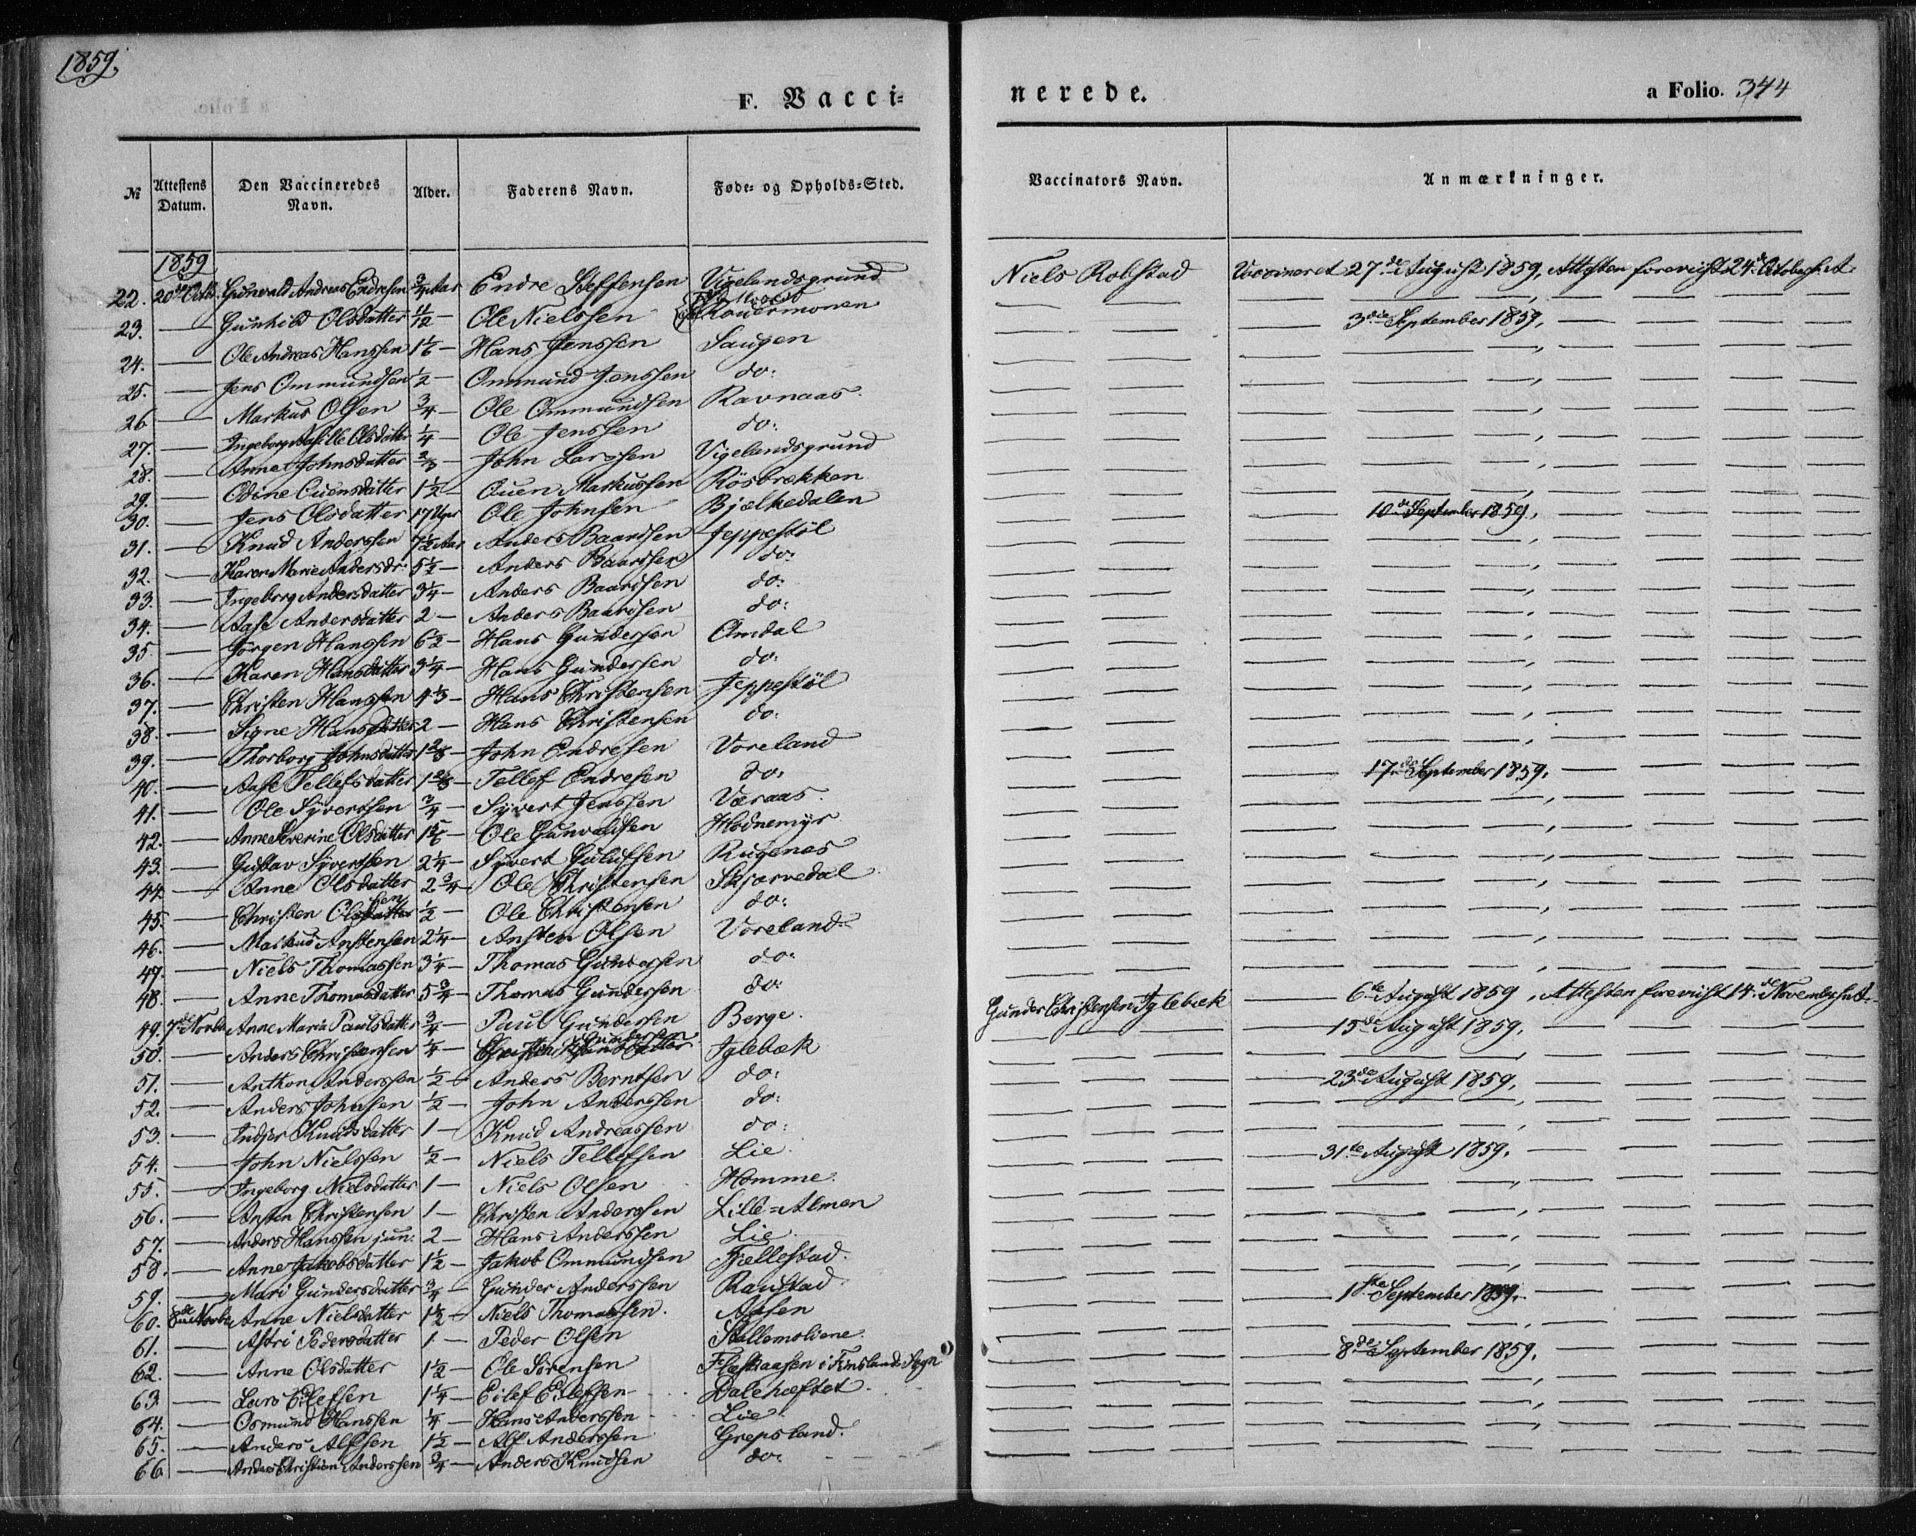 1859.
F. Vacci=
nerede.
a Folio. 344
№ Attestens Datum. Den Vaccineredes Navn. Alder. Faderens Navn. Føde= og Opholds=Sted. Vaccinators Navn. Anmærkninger.
1859
22. 20de Octb. Gunvald Andreas Endresen 3/4 Aar Endre Steffensen Vigelandsgrund Niels Robstad Vaccineret 27de August 1859, Attesten forevist 24de October s. A.
23. — Gunhild Olsdatter 1/12 — Ole Nielssen Rouermonen — 3die September 1859,
24. — Ole Andreas Hanssen 1 1/6 — Hans Jenssen Saugen
25. — Jens Ommundsen 1/2 — Ommund Jenssen do:
26. — Markus Olsen 3/4 — Ole Ommundsen Ravnaas.
27. — Ingeborg Olsdatter 1/4 — Ole Jenssen do:
28. — Anne Johnsdatter 2/3 John Larssen Vigelandsgrund
29. — Odine Ouensdatter 1 1/2 — Ouen Markussen Rösbrækken
30. — Jens Olsdatter 17 Uger Ole Johnsen Bjelkedalen — 10de September 1859,
31. — Knud Anderssen 7 1/2 Aar Anders Baardsen Jeppestøl
32. — Karen Marie Andersdr: 5 1/2 — Anders Baardsen do:
33. — Ingeborg Andersdatter 3 1/4 — Anders Baardsen do:
34. — Aase Andersdatter 2 — Anders Baardsen do:
35. — Jörgen Hanssen 6 1/2 — Hans Gundersen Omdal
36. — Karen Hansdatter 3 1/4 — Hans Gundersen do:
37. — Christen Hanssen 4 1/3 — Hans Christensen Jeppestöl
38. — Signe Hansdatter 2 — Hans Christensen do:
39. — Thorborg Johnsdatter 1 2/3 — John Endresen Voreland
40. — Aase Tellefsdatter 1 2/3 — Tellef Endresen do: — 17de September 1859,
41. — Ole Syvertsen 3/4 — Syvert Jenssen Væraas.
42. — Anne Severine Olsdatter 1 5/6 — Ole Gunvaldsen Hodnemyr
43. — Gustav Syvertsen 2 1/4 — Syvert Gulufsen Rugenes
44. — Anne Olsdatter 2 3/4 — Ole Christensen Skjærvedal
45. — Christen Olsen 1/2 — Ole Christensen do:
46. — Markus Anstensen 2 1/4 — Ansten Olsen Voreland
47. — Niels Thomassen 3 1/4 — Thomas Gundersen do:
48. — Anne Thomasdatter 5 3/4 — Thomas Gundersen do:
49. 7de Novbr Anne Maria Paulsdatter 3/4 — Paul Gundersen Berge. Gunder Christensen Iglebæk — 6te August 1859, Attesten forevist 14de November s. A.
50. — Anders Christensen 1/4 — Iglebæk — 15de August 1859,
51. — Anthon Anderssen 1/2 — Anders Berntsen do:
52. — Anders Johnsen 1/2 — John Anderssen do: — 23de August 1859,
53. — Indjer Knudsdatter 1 — Knud Andreassen do:
54. — John Nielssen 1/2 — Niels Tellefsen Lie
55. — Ingeborg Nielsdatter 1 — Niels Olsen Homme — 31te August 1859,
56. — Ansten Christensen 1 — Christen Anderssen Lille=Almen
57. — Anders Hanssen jun. 2 — Hans Anderssen Lie
58. — Anne Jakobsdatter 1 1/2 — Jakob Ommundsen Fjellestad
59. — Mari Gundersdatter 3/4 — Gunder Anderssen Raustad
60. 8de Novbr Anne Nielsdatter 1 1/2 — Niels Thomassen. Aasen — 1ste September 1859,
61. — Astri Pedersdatter 1 — Peder Olsen Stallemoliene
62. — Anne Olsdatter 1 1/2 — Ole Sörensen i Finslands Sogn — 8de September 1859,
63. — Lars Eilefsen 1 1/4 — Eilef Eilefsen Daleheftet
64. — Osmund Hanssen 1/4 — Hans Anderssen Lie
65. — Anders Alfsen 1 1/2 — Alf Anderssen Grepsland.
66. — Anders Christian Anderssen 3/4 — Anders Knudsen do: